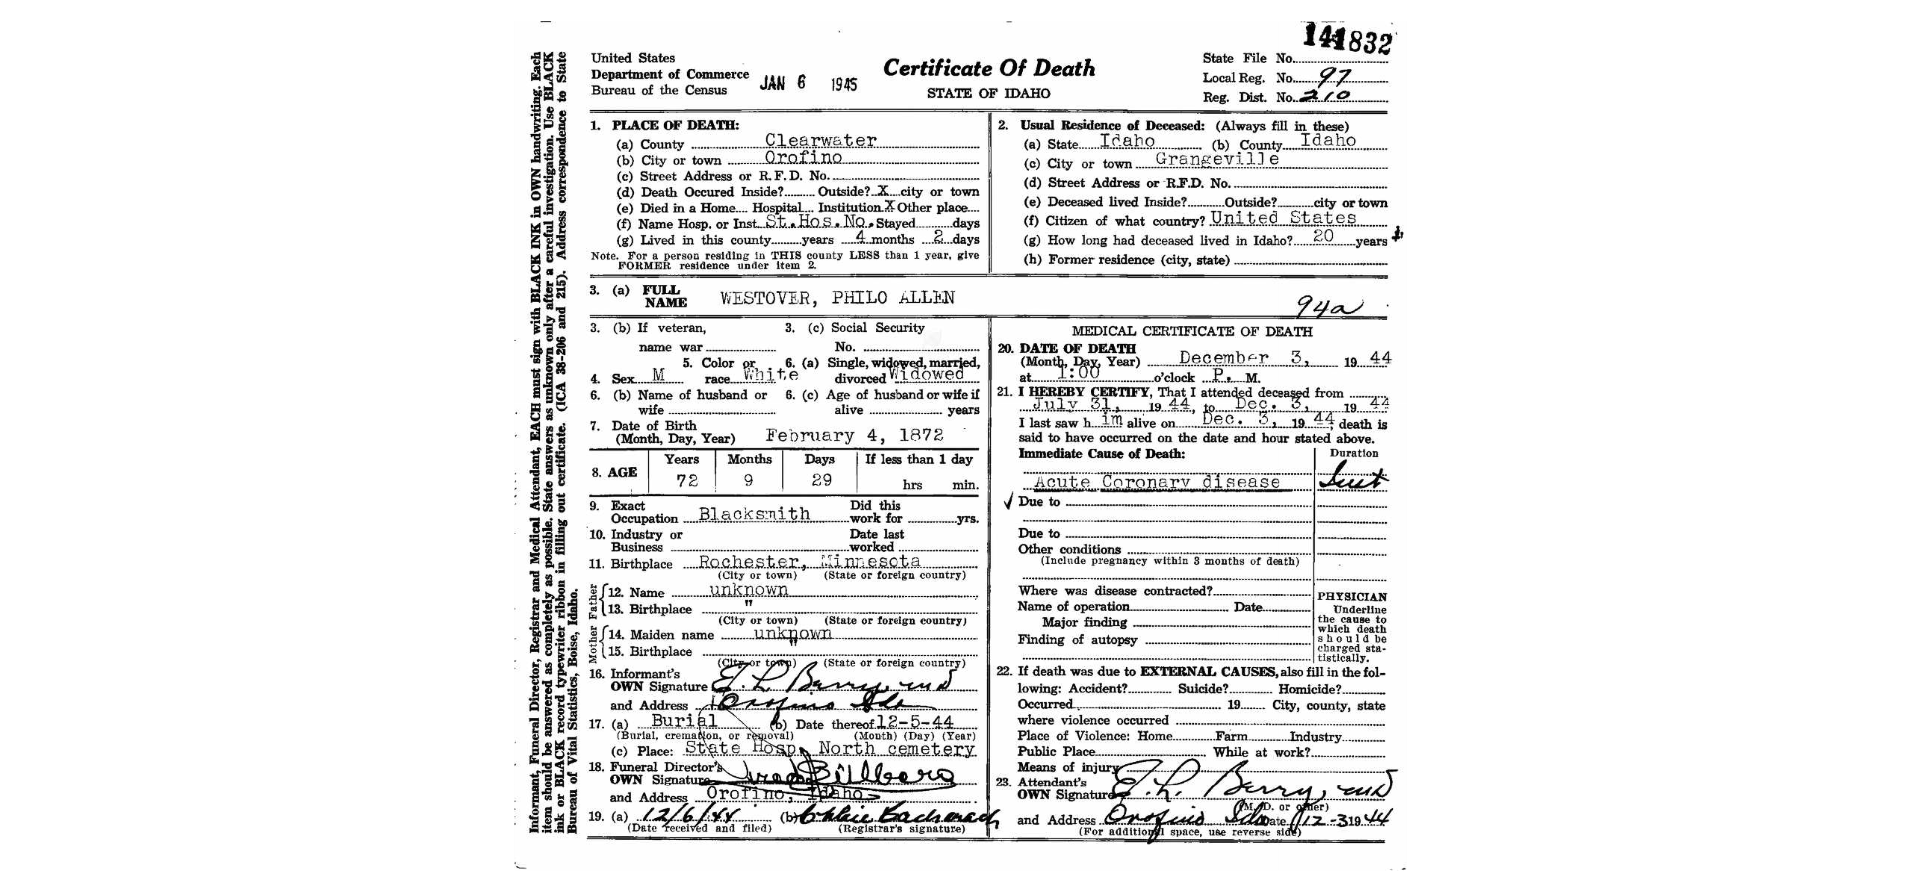 141832
United States
Department of Commerce
Bureau of the Census
JAN 6 1945
Certificate Of Death
STATE OF IDAHO
State File No.
Local Reg. No. 97
Reg. Dist. No. 210
Informant, Funeral Director, Registrar and Medical Attendant, EACH must sign with BLACK INK in OWN handwriting. Each
item should be answered as completely as possible. State answers as unknown only after a careful investigation. Use BLACK
ink or BLACK record typewriter ribbon in filling out certificate. (ICA 38-206 and 215). Address correspondence to State
Bureau of Vital Statistics, Boise, Idaho.
1. PLACE OF DEATH:
(a) County Clearwater
(b) City or town Orofino
(c) Street Address or R.F.D. No.
(d) Death Occured Inside? Outside? X city or town
(e) Died in a Home Hospital Institution X Other place
(f) Name Hosp. or Inst. St. Hos. No. Stayed days
(g) Lived in this county years 4 months 2 days
Note. For a person residing in THIS county LESS than 1 year, give
FORMER residence under item 2.
2. Usual Residence of Deceased: (Always fill in these)
(a) State Idaho (b) County Idaho
(c) City or town Grangeville
(d) Street Address or R.F.D. No.
(e) Deceased lived Inside? Outside? city or town
(f) Citizen of what country? United States
(g) How long had deceased lived in Idaho? 20 years
(h) Former residence (city, state)
3. (a) FULL
NAME WESTOVER, PHILO ALLEN
94a
3. (b) If veteran,
name war
3. (c) Social Security
No.
4. Sex M
5. Color or
race White
6. (a) Single, widowed, married,
divorced Widowed
6. (b) Name of husband or
wife
6. (c) Age of husband or wife if
alive years
7. Date of Birth
(Month, Day, Year) February 4, 1872
8. AGE
Years Months Days If less than 1 day
72 9 29 hrs min.
9. Exact
Occupation Blacksmith
Did this
work for yrs.
10. Industry or
Business
Date last
worked
11. Birthplace Rochester, Minnesota
(City or town) (State or foreign country)
Father
12. Name unknown
13. Birthplace "
(City or town) (State or foreign country)
Mother
14. Maiden name unknown
15. Birthplace "
(City or town) (State or foreign country)
16. Informant's
OWN Signature E. L. Berry, md
and Address Orofino Ida
17. (a) Burial (b) Date thereof 12-5-44
(Burial, cremation, or removal) (Month) (Day) (Year)
(c) Place: State Hosp. North cemetery
18. Funeral Director's
OWN Signature
and Address Orofino, Idaho
19. (a) 12/6/44 (b)
(Date received and filed) (Registrar's signature)
MEDICAL CERTIFICATE OF DEATH
20. DATE OF DEATH
(Month, Day, Year) December 3, 19 44
at 1:00 o'clock P. M.
21. I HEREBY CERTIFY, That I attended deceased from
July 31, 19 44, to Dec. 3, 19 44
I last saw h im alive on Dec. 3, 19 44 death is
said to have occurred on the date and hour stated above.
Immediate Cause of Death: Duration
Acute Coronary disease
Due to
Due to
Other conditions
(Include pregnancy within 3 months of death)
Where was disease contracted?
Name of operation Date
Major finding
Finding of autopsy
PHYSICIAN
Underline
the cause to
which death
should be
charged sta-
tistically.
22. If death was due to EXTERNAL CAUSES, also fill in the fol-
lowing: Accident? Suicide? Homicide?
Occurred 19 City, county, state
where violence occurred
Place of Violence: Home Farm Industry
Public Place While at work?
Means of injury
23. Attendant's
OWN Signature E. L. Berry, md
(M.D. or other)
and Address Orofino Ida Date 12-3 19 44
(For additional space, use reverse side)